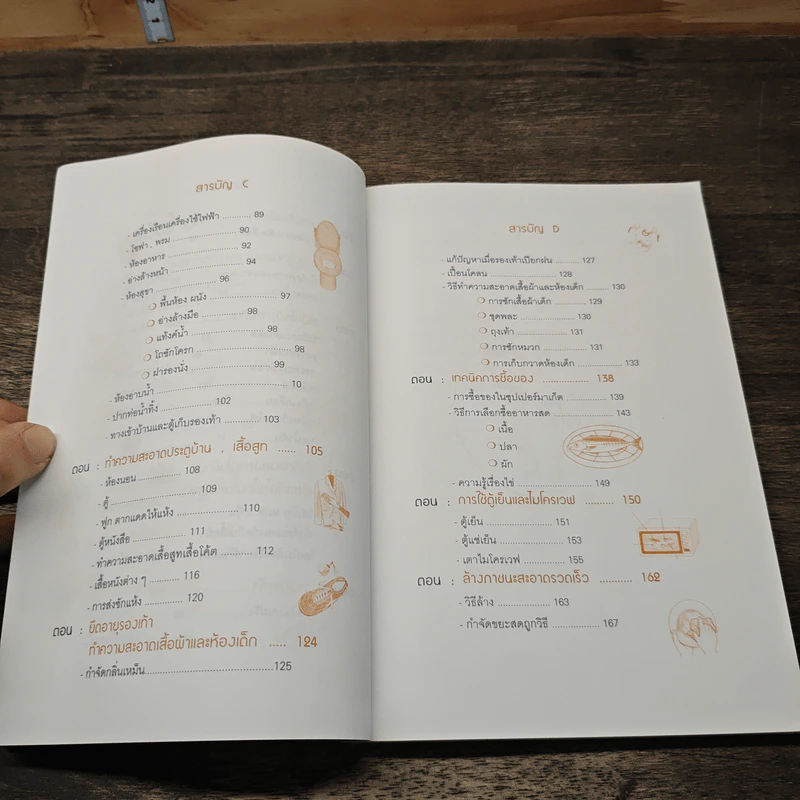 สารบัญ C
- เครื่องเรือนเครื่องใช้ไฟฟ้า .......... 89
- โซฟา , พรม .......... 90
- ห้องอาหาร .......... 92
- อ่างล้างหน้า .......... 94
- ห้องสุขา .......... 96
❍ พื้นห้อง ผนัง .......... 97
❍ อ่างล้างมือ .......... 98
❍ แท้งค์น้ำ .......... 98
❍ โถชักโครก .......... 98
❍ ฝารองนั่ง .......... 99
- ห้องอาบน้ำ .......... 10
- ปากท่อน้ำทิ้ง .......... 102
- ทางเข้าบ้านและตู้เก็บรองเท้า .......... 103
ตอน : ทำความสะอาดประตูบ้าน , เสื้อสูท ..... 105
- ห้องนอน .......... 108
- ตู้ .......... 109
- ฟูก ตากแดดให้แห้ง .......... 110
- ตู้หนังสือ .......... 111
- ทำความสะอาดเสื้อสูทเสื้อโค้ต .......... 112
- เสื้อหนังต่าง ๆ .......... 116
- การส่งซักแห้ง .......... 120
ตอน : ยืดอายุรองเท้า
ทำความสะอาดเสื้อผ้าและห้องเด็ก ..... 124
- กำจัดกลิ่นเหม็น..........125
สารบัญ D
- แก้ปัญหาเมื่อรองเท้าเปียกฝน .......... 127
- เปื้อนโคลน .......... 128
- วิธีทำความสะอาดเสื้อผ้าและห้องเด็ก .......... 130
❍ การซักเสื้อผ้าเด็ก .......... 129
❍ ชุดพละ .......... 130
❍ ถุงเท้า .......... 131
❍ การซักหมวก .......... 131
❍ การเก็บกวาดห้องเด็ก .......... 133
ตอน : เทคนิคการซื้อของ .......... 138
- การซื้อของในซุปเปอร์มาเก็ต .......... 139
- วิธีการเลือกซื้ออาหารสด .......... 143
❍ เนื้อ
❍ ปลา
❍ ผัก
- ความรู้เรื่องไข่ .......... 149
ตอน : การใช้ตู้เย็นและไมโครเวฟ .......... 150
- ตู้เย็น .......... 151
- ตู้แช่เย็น .......... 153
- เตาไมโครเวฟ .......... 155
ตอน : ล้างภาชนะสะอาดรวดเร็ว .......... 162
- วิธีล้าง .......... 163
- กำจัดขยะสดถูกวิธี .......... 167